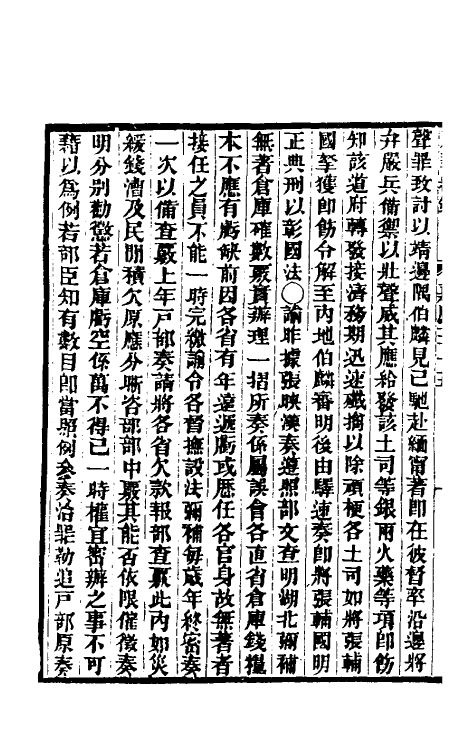 聲罪致討以靖邊隅伯麟見已馳赴緬甯著即在彼督率沿邊將
弁嚴兵備禦以壯聲威其應給發該土司等銀兩火藥等項即飭
知該道府轉發接濟務期迅速殲擒以除頑梗各土司如將張輔
國拏獲即飭令解至內地伯麟審明後由驛速奏即將張輔國明
正典刑以彰國法○諭昨據張映漢奏遵照部文查明湖北彌補
無著倉庫確數覈實辦理一摺所奏係屬誤會各直省倉庫錢糧
本不應有虧缺前因各省有年遠遞虧或歷任各官身故無著者
接任之員不能一時完繳諭令各督撫設法彌補每歲年終密奏
一次以備查覈上年戶部奏請將各省欠款報部查覈此內如災
緩錢漕及民間積欠原應分晰咨部部中覈其能否依限催徵奏
明分別勸懲若倉庫虧空係萬不得已一時權宜密辦之事不可
藉以爲例若部臣知有數目即當照例參奏治罪勒追戶部原奏